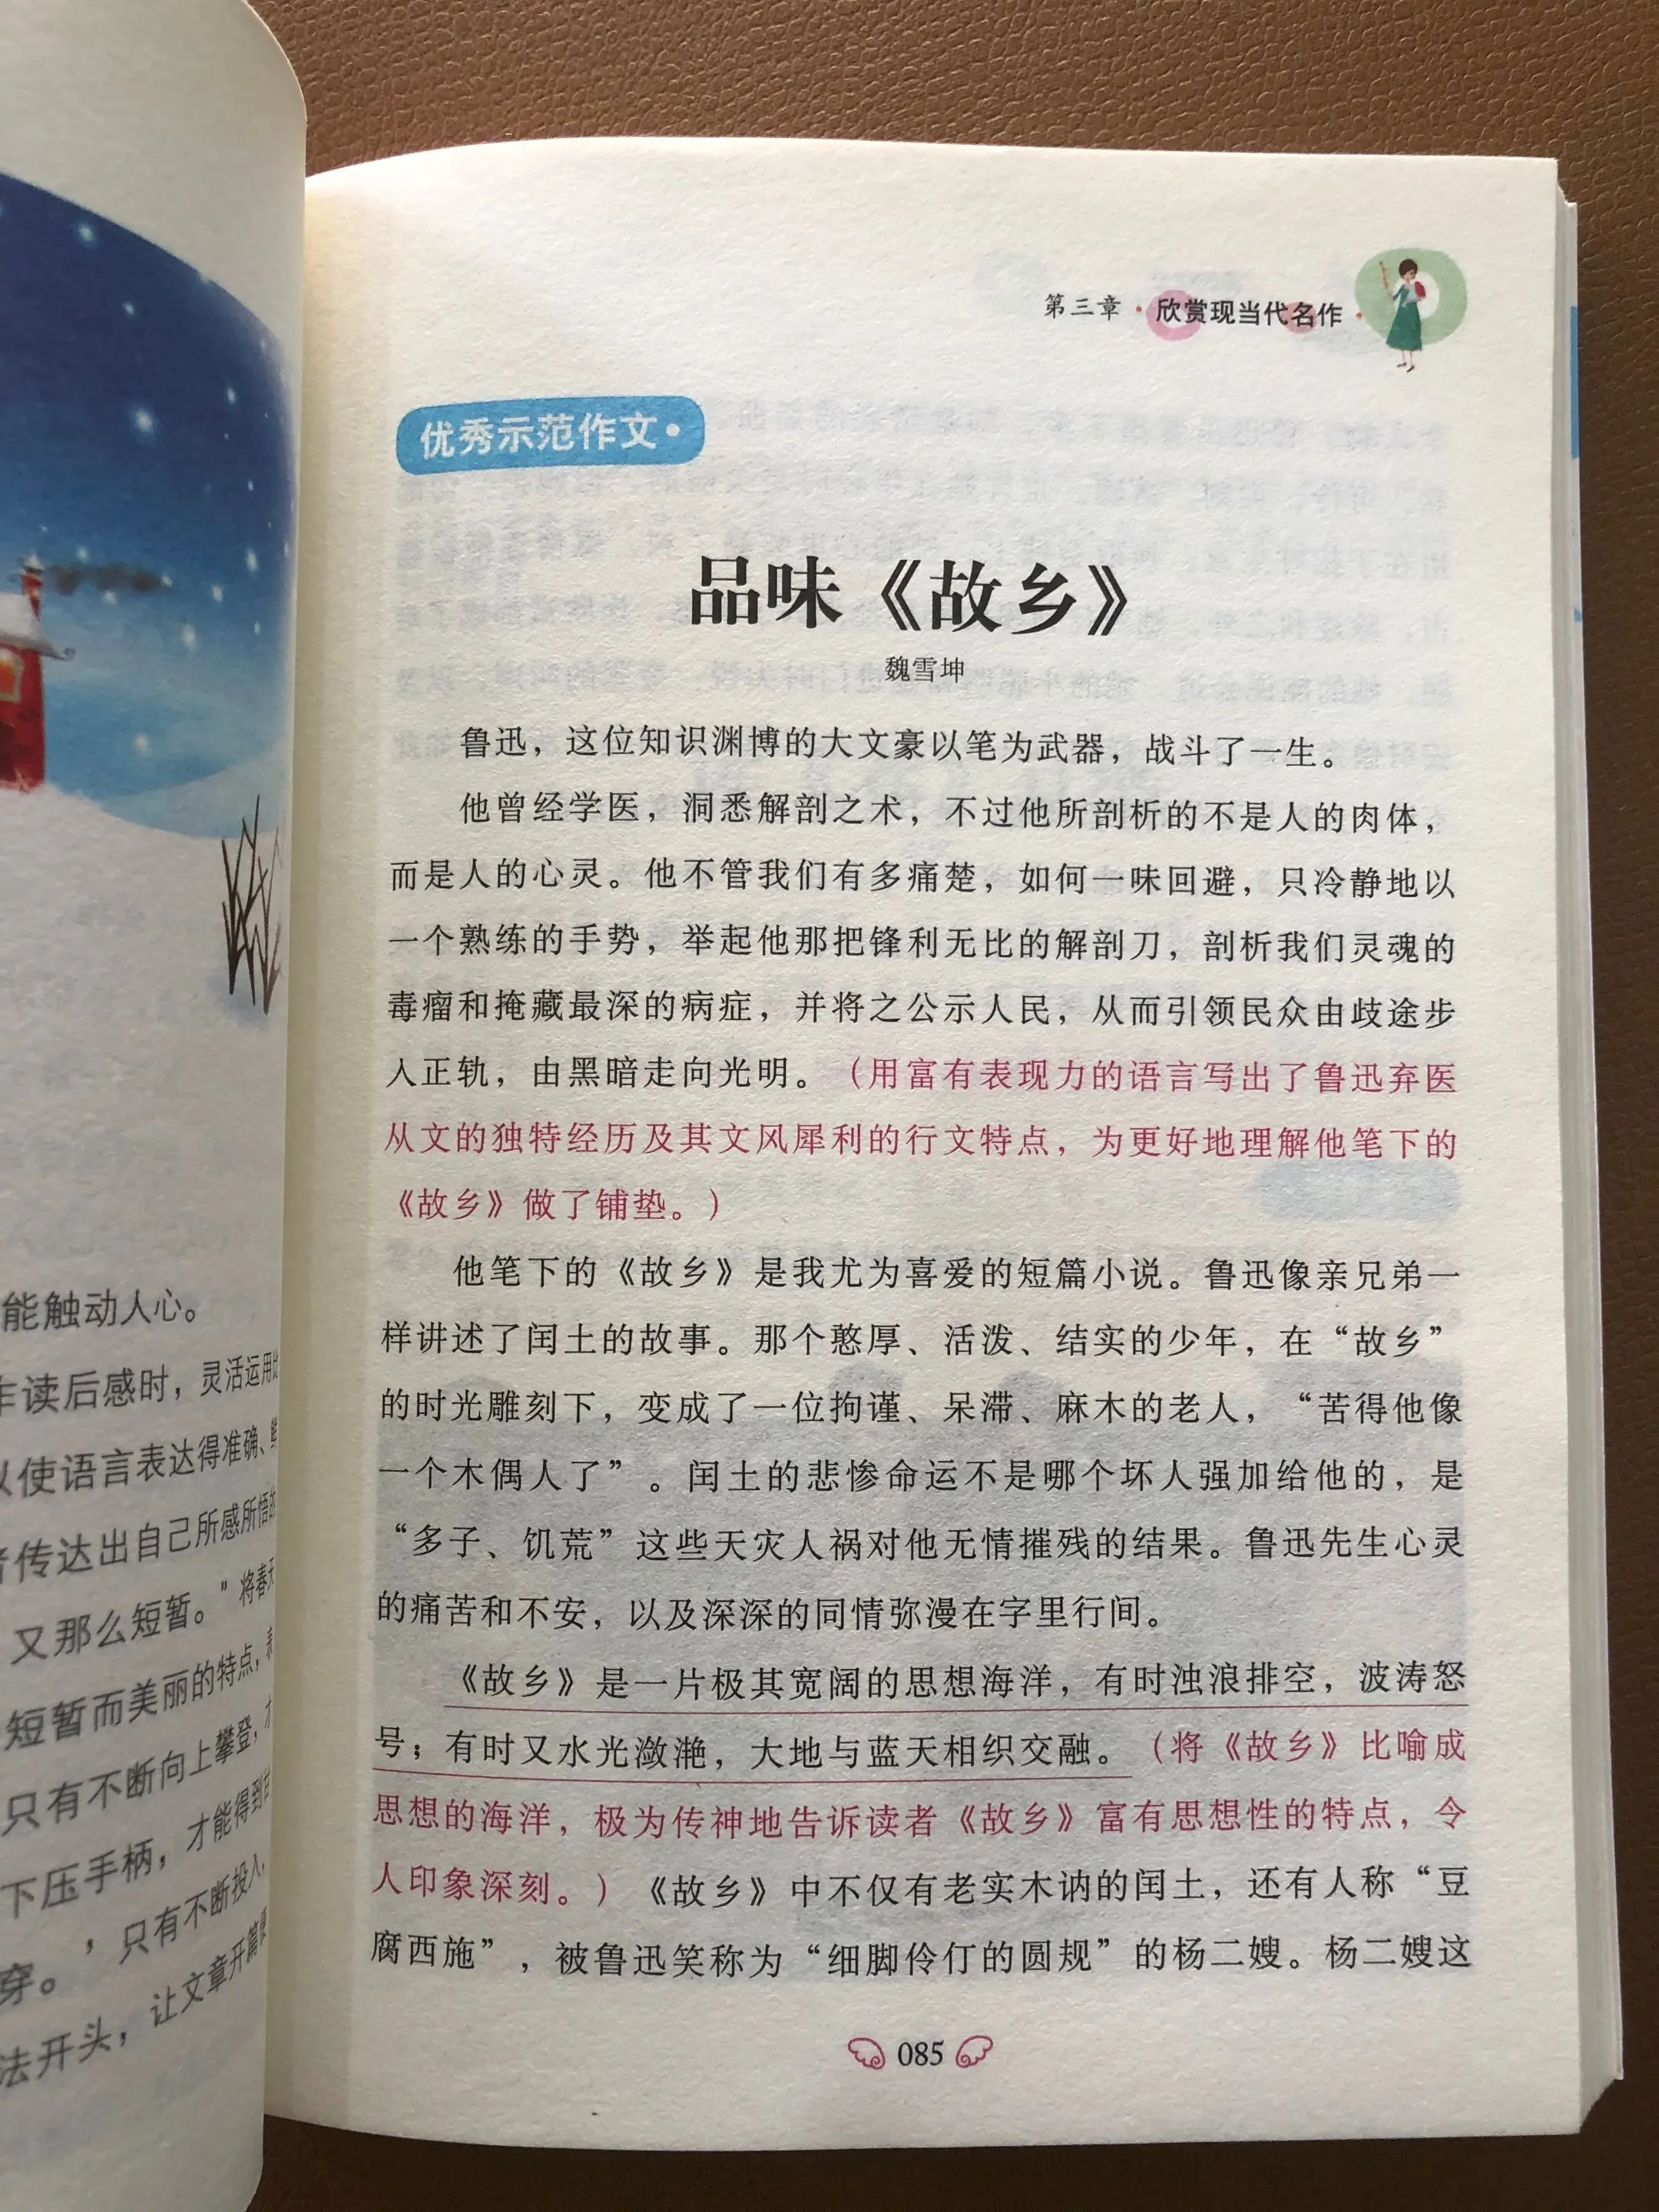 能触动人心。
作读后感时，灵活运用
以使语言表达得准确、
者传达出自己所感所悟的
又那么短暂。”将春天
短暂而美丽的特点，
只有不断向上攀登，
下压手柄，才能得到
穿。’只有不断投入
法开头，让文章开篇
第三章·欣赏现当代名作·
优秀示范作文·
品味《故乡》
魏雪坤
鲁迅，这位知识渊博的大文豪以笔为武器，战斗了一生。
他曾经学医，洞悉解剖之术，不过他所剖析的不是人的肉体，
而是人的心灵。他不管我们有多痛楚，如何一味回避，只冷静地以
一个熟练的手势，举起他那把锋利无比的解剖刀，剖析我们灵魂的
毒瘤和掩藏最深的病症，并将之公示人民，从而引领民众由歧途步
入正轨，由黑暗走向光明。（用富有表现力的语言写出了鲁迅弃医
从文的独特经历及其文风犀利的行文特点，为更好地理解他笔下的
《故乡》做了铺垫。）
他笔下的《故乡》是我尤为喜爱的短篇小说。鲁迅像亲兄弟一
样讲述了闰土的故事。那个憨厚、活泼、结实的少年，在“故乡”
的时光雕刻下，变成了一位拘谨、呆滞、麻木的老人，“苦得他像
一个木偶人了”。闰土的悲惨命运不是哪个坏人强加给他的，是
“多子、饥荒”这些天灾人祸对他无情摧残的结果。鲁迅先生心灵
的痛苦和不安，以及深深的同情弥漫在字里行间。
《故乡》是一片极其宽阔的思想海洋，有时浊浪排空，波涛怒
号；有时又水光潋滟，大地与蓝天相织交融。（将《故乡》比喻成
思想的海洋，极为传神地告诉读者《故乡》富有思想性的特点，令
人印象深刻。）《故乡》中不仅有老实木讷的闰土，还有人称“豆
腐西施”，被鲁迅笑称为“细脚伶仃的圆规”的杨二嫂。杨二嫂这
085